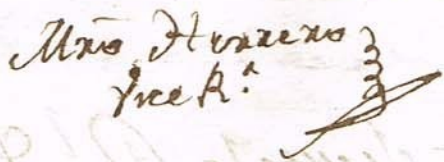 Mrõ Herrero
Vice R.ᵃ